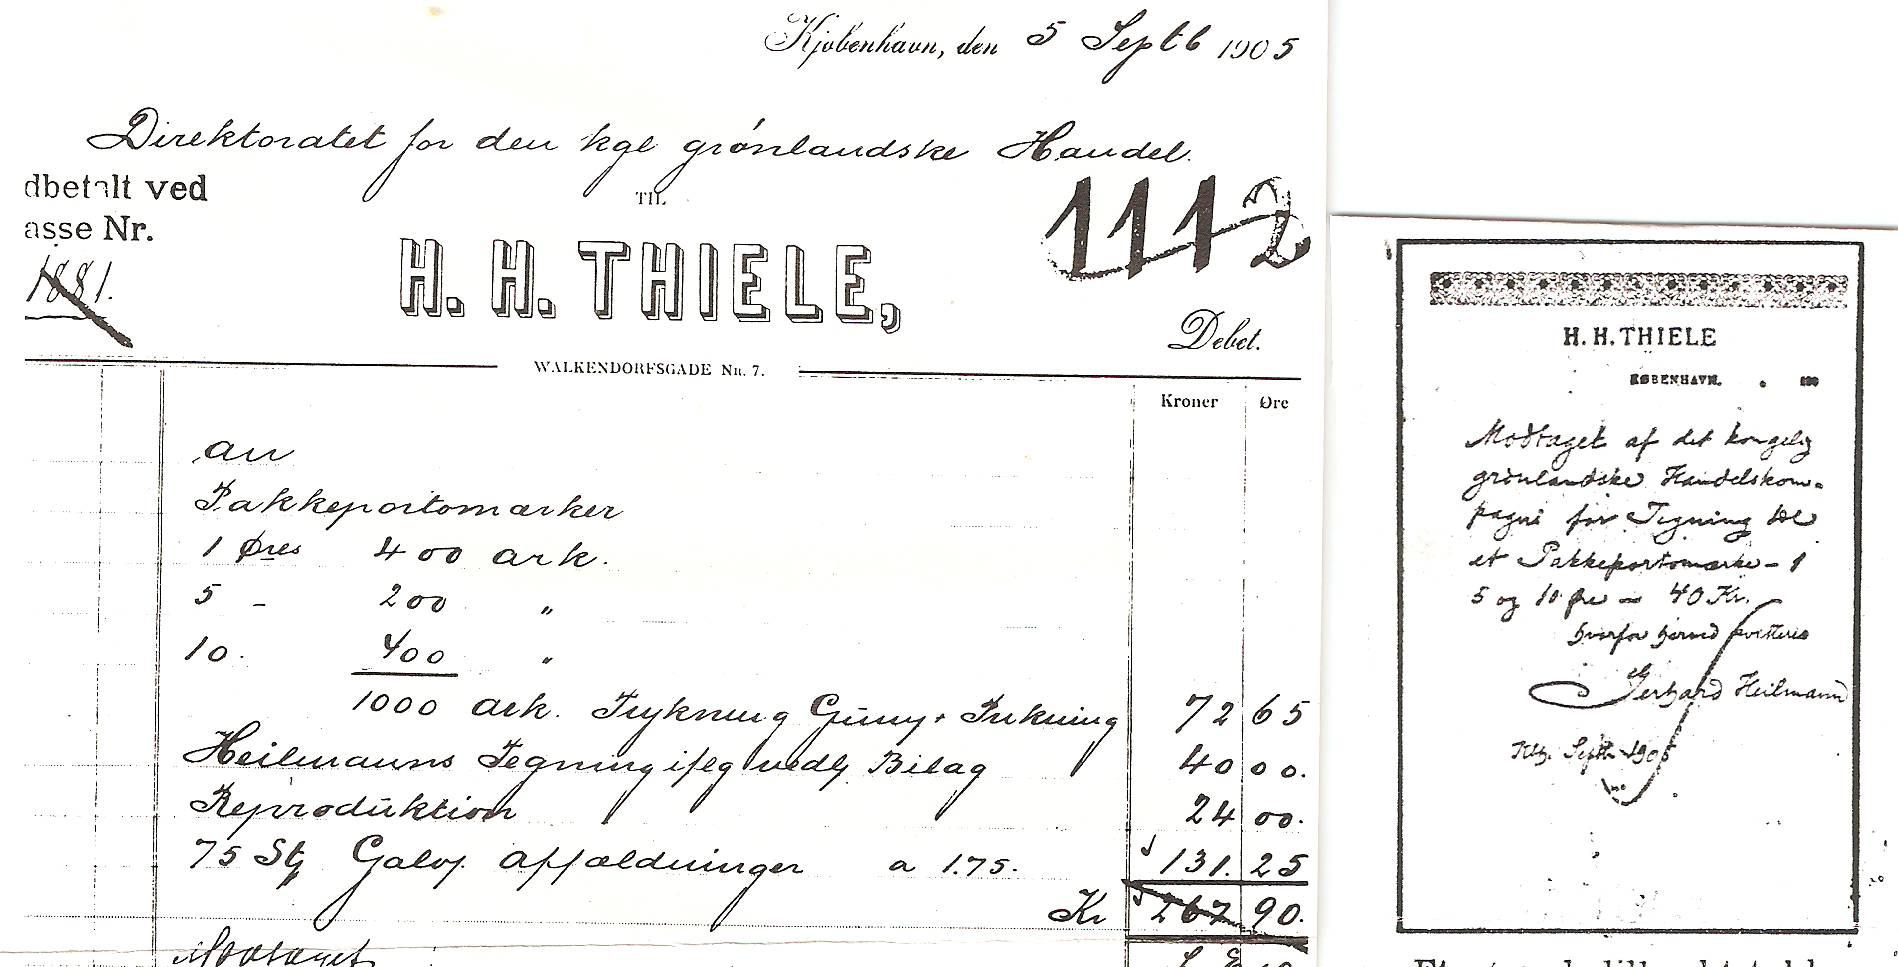 Kjøbenhavn, den 5 Septb 1905
Direktoratet for den kgl grønlandske Handel.
dbetalt ved
TIL
1112
asse Nr.
1881.
H. H. THIELE,
Debet.
WALKENDORFSGADE NR. 7.
Kroner Øre
an
Pakkeportomærker
1 Øres 400 ark.
5 - 200 "
10. 400 "
1000 ark. Trykning Gumy. Prikning 72 65
Heilmanns Tegning ifølg vedlg Bilag 40 00.
Reproduktion 24 00.
75 Stg Galv. Affældninger a 1.75. 131. 25
Kr 267 90.
Modtaget
H. H. THIELE
KØBENHAVN. . 190
Modtaget af det kongelig
grönlandske Handelskom-
pagni for Tegning til
et Pakkeportomærke - 1
5 og 10 Øre - 40 Kr.
hvorfor herved kvitteres
Gerhard Heilmann
Kbh. Septb. 1905